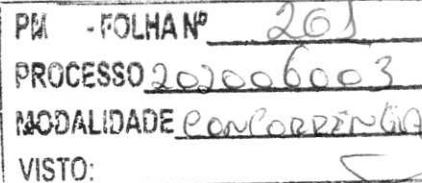 PM - FOLHA Nº 261
PROCESSO 202006003
MODALIDADE CONCORRÊNCIA
VISTO: